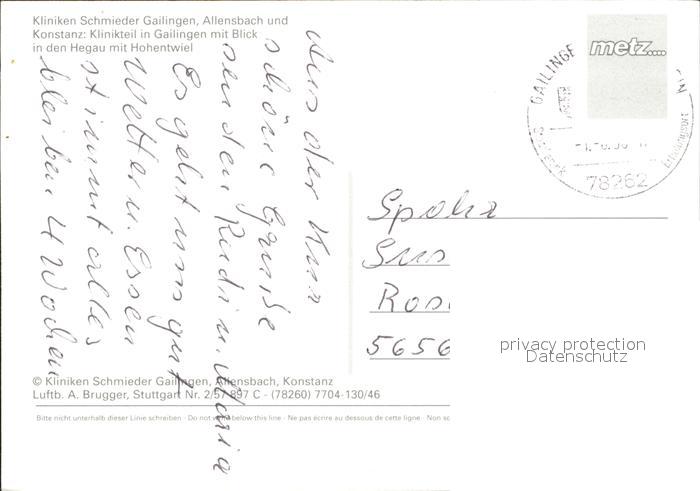 Kliniken Schmieder Gailingen, Allensbach und
Konstanz: Klinikteil in Gailingen mit Blick
in den Hegau mit Hohentwiel
Aus der Kur
schöne Grüße
senden Rudi u. Maria
Es geht uns gut
Wetter u. Essen
stimmt alles
bleiben 4 Wochen
metz....
GAILINGE
78262
Spohr
Sus
Ros
5656
privacy protection
Datenschutz
© Kliniken Schmieder Gailingen, Allensbach, Konstanz
Luftb. A. Brugger, Stuttgart Nr. 2/57 897 C - (78260) 7704-130/46
Bitte nicht unterhalb dieser Linie schreiben · Do not write below this line · Ne pas écrire au dessous de cette ligne · Non sc